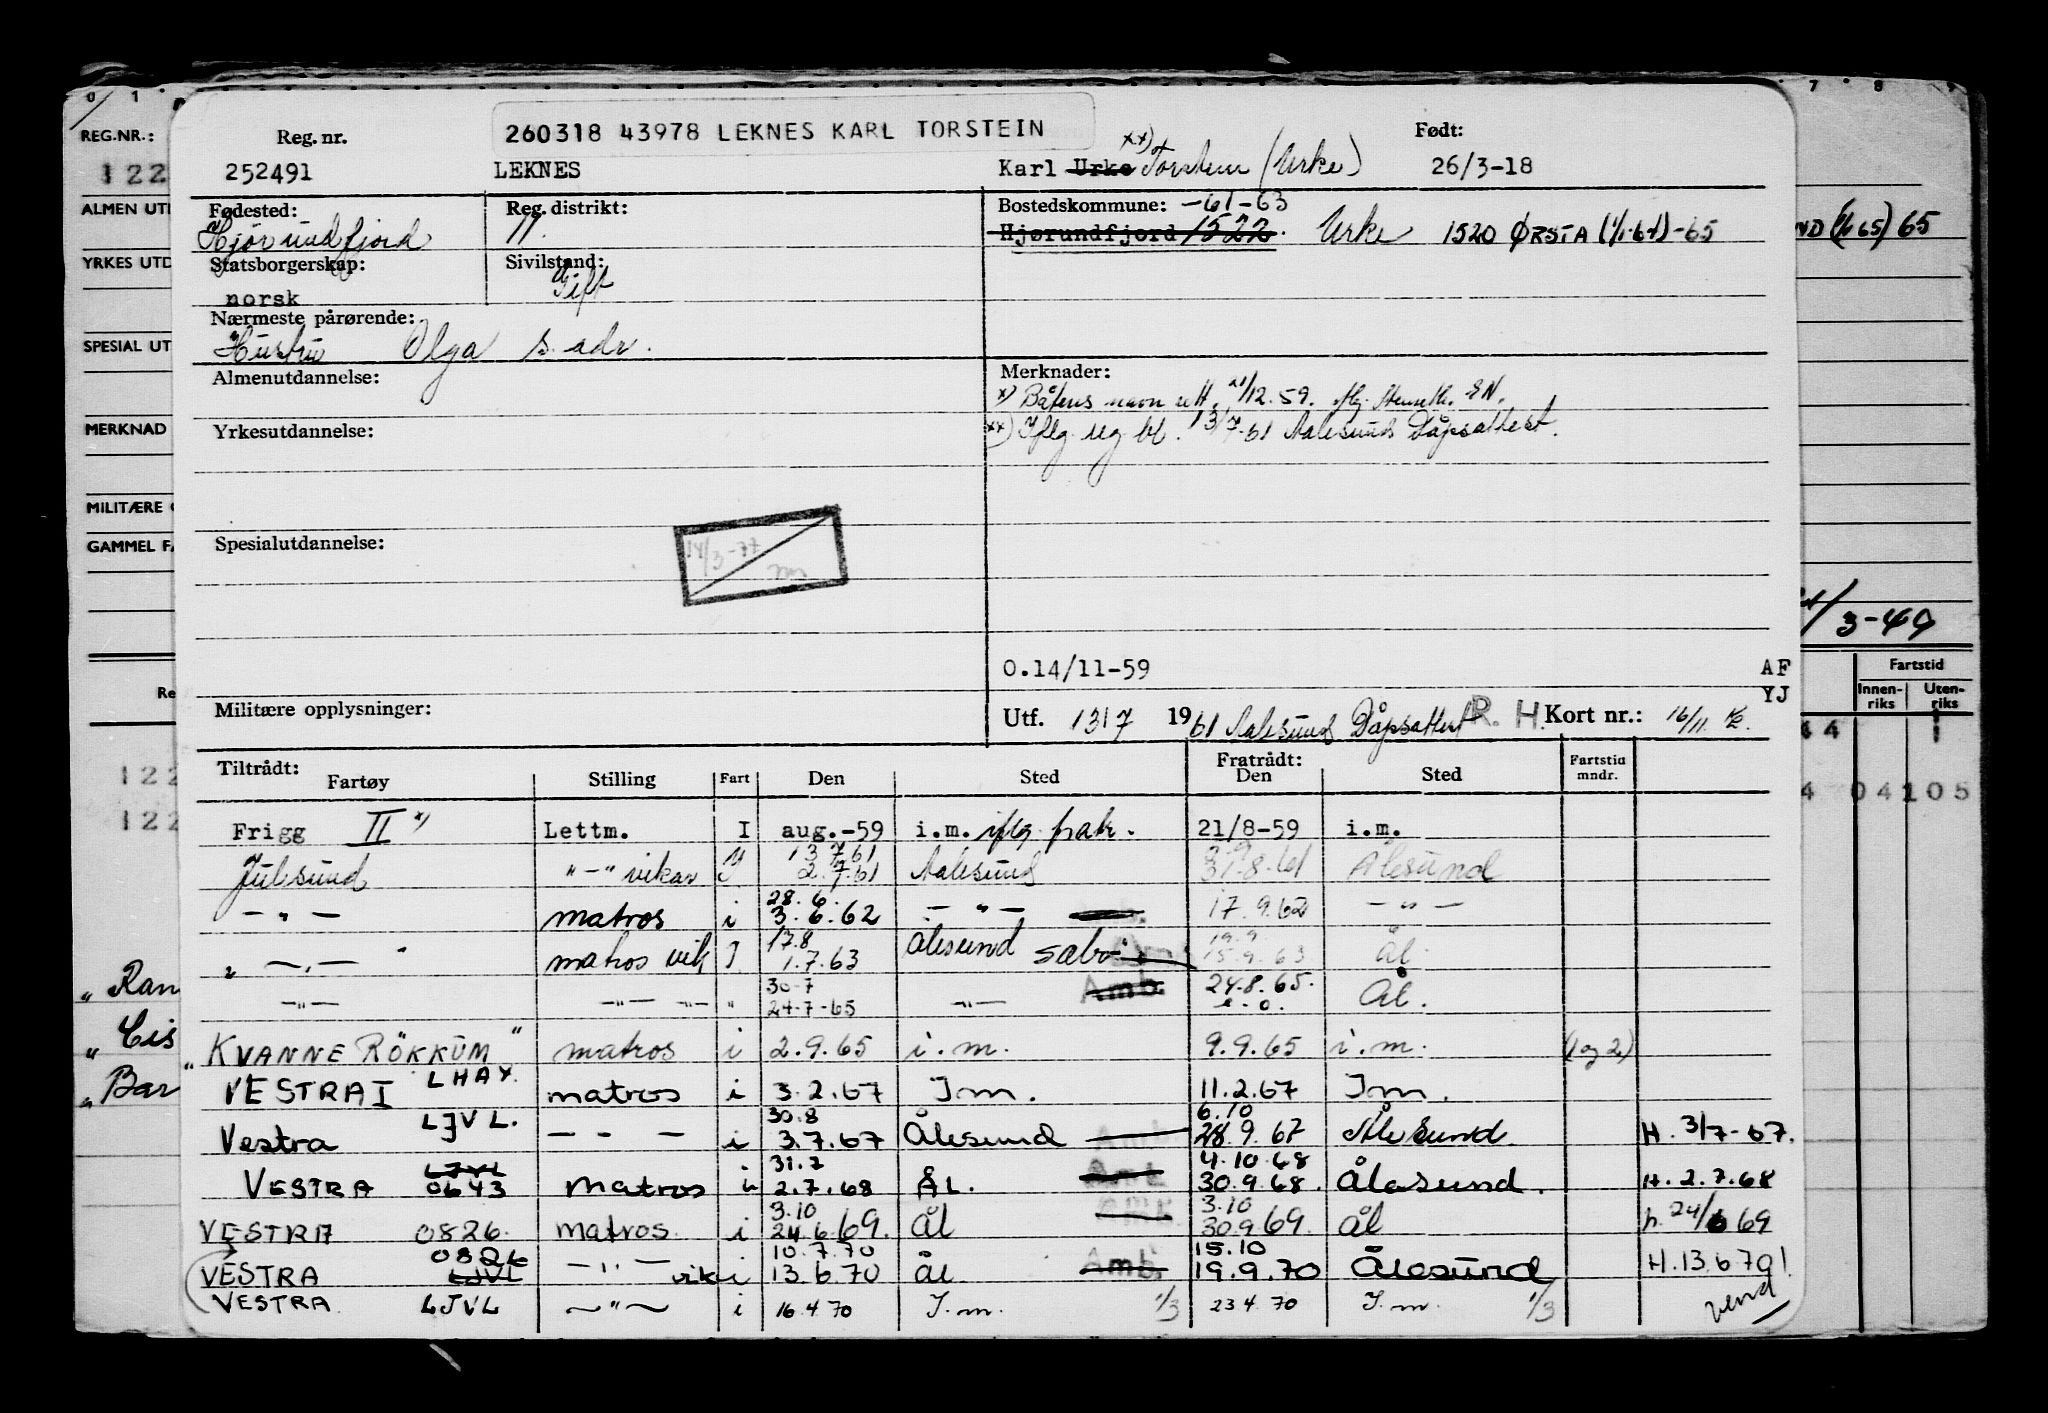 0 1 7 8 9
REG.NR.: Reg. nr. 260318 43978 LEKNES KARL TORSTEIN xx) Født:
122 252491 LEKNES Karl Urke Torstein (Urke) 26/3-18
ALMEN UT Fødested: Reg. distrikt: Bostedskommune: -61-63
Hjørundfjord 11. Hjørundfjord 1522. Urke 1520 ØRSTA (1/1-64)-65 65
YRKES UTD Statsborgerskap: Sivilstand:
norsk Gift
Nærmeste pårørende:
SPESIAL UT Hustru Olga s. adr.
Almenutdannelse: Merknader:
x) Båtens navn rett. /12.59. EN.
MERKNAD Yrkesutdannelse: xx) Iflg. reg bl. 13/7-61 Aalesund Dåpsattest.
MILITÆRE
GAMMEL F Spesialutdannelse: 14/3-77
3-49
0.14/11-59 AF
YJ
Militære opplysninger: Utf. 13/7 1961 Aalesund Dåpsattest R. H. Kort nr.: 16/11
Fartstid
Innen-riks Uten-riks
Tiltrådt: Fratrådt:
Fartøy Stilling Fart Den Sted Den Sted Fartstid mndr.
44 1
122 4 04105
122 Frigg II x) Lettm. I aug.-59 i.m. iflg. frakr. 21/8-59 i.m.
Julsund "-" vikar I 13 7 61 2.7.61 Aalesund 31.8.61 Ålesund
-"- matros i 28.6. 3.6.62 -"- 17.9.62 -"-
" -"- " matros vik I 17.8 1.7.63 Ålesund 19.9 15.9.63 Ål.
-"- -"- -"- " 30-7 24-7-65 -"- Amb. 24.8.65. Ål.
"KVANNE RÖKKUM" matros i 2.9.65 i.m. 9.9.65 i.m. (1 og 2)
VESTRA I LHAY. matros i 3.2.67 I m. 11.2.67 I m.
Vestra LJVL. - - - i 30.8 3.7.67 Ålesund Amb. 6.10 28.9.67 Ålesund H. 3/7-67.
VESTRA LJVL 0643 matros i 31.7 2.7.68 ÅL. Amb 4.10.68 30.9.68. Ålesund. H. 2.7.68
VESTRA 0826. matros. i 3.10 24.6.69. Ål Amb. 3.10 30.9 69. Ål h. 24/6 69
VESTRA 0826 LJVL -"- vik i 10.7.70 13.6.70 Ål Amb. 15.10 19.9.70 Ålesund H.13.6 70!
VESTRA LJVL -"- i 16.4.70 I.m. 1/3 23 4.70 I.m. 1/3 vend
"Ran
"Cis
"Bar